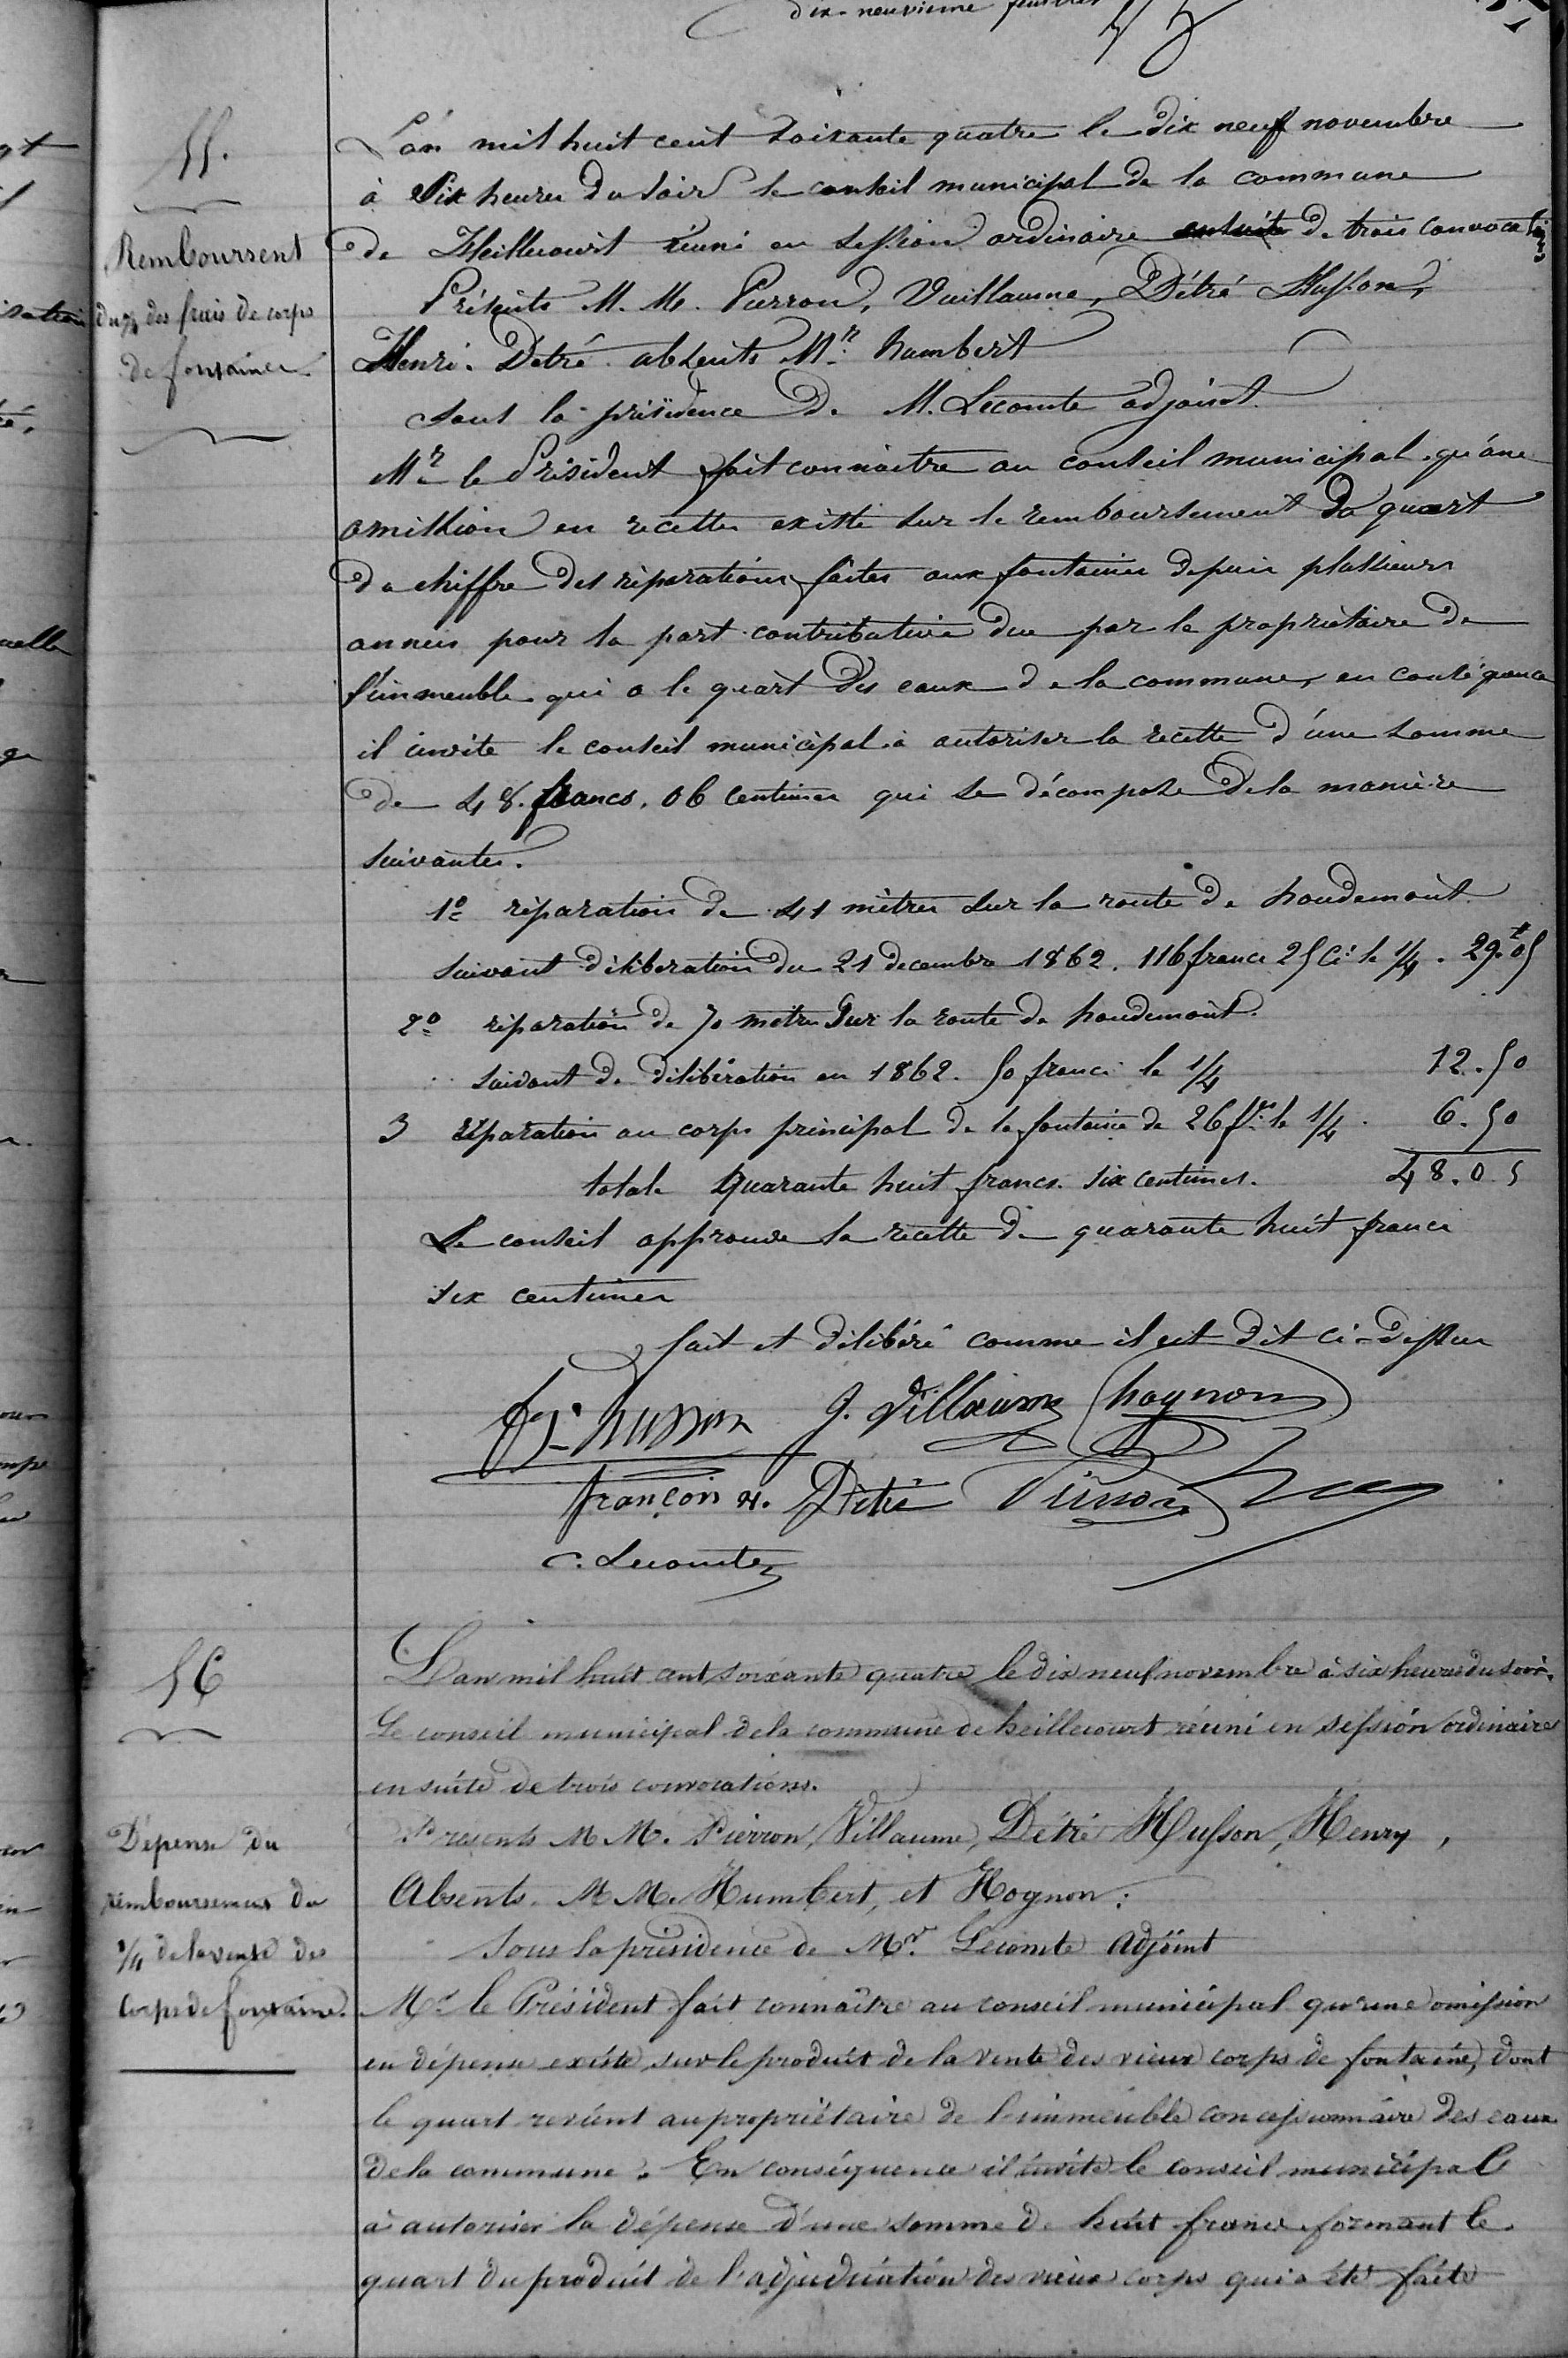 dix-neuvième feuillet
55.
Remboursent
du 1/4 des frais de corps
de fontaines
L'an mil huit cent soixante quatre le dix neuf novembre
à Six heures du soir le conseil municipal de la commune
de Heillecourt réuni en session ordinaire ensuite de trois convocations
Présents M. M. Pierron, Vuillaume, Détré Husson,
Henri. Détré absents Mr. humbert
sous la présidence de M. Lecomte adjoint.
Mr le Président fait connaitre au conseil municipal qu'une
omission en recettes existe sur le remboursement du quart
du chiffre des réparations faites aux fontaines depuis plusieurs
années pour la part contributive due par le propriétaire de
l'immeuble qui a le quart des eaux de la commune, en conséquence
il invite le conseil municipal à autoriser la recette d'une somme
de 48. francs. 06 centimes qui se décompose de la manière
suivante.
1º réparation de 41 mètres sur la route de houdemont
suivant délibération du 21 decembre 1862. 116 francs 25 Ci le 1/4. 29f.05
2º réparation de 70 mètres Sur la route de houdemont.
suivant de délibération en 1862. 50 francs le 1/4 12.50
3 réparation au corps principal de la fontaine de 26 fr. le 1/4. 6.50
totale Quarante huit francs. six centimes. 48.05
Le conseil approuve la recette de quarante huit francs
six centimes
fait et délibéré comme il est dit ci-dessus
husson J. Villaume hognon
françois H. Détré Pierron
C. Lecomte
56
Dépense du
remboursement du
1/4 de la vente des
corps de fontaine.
L'an mil huit cent soixante quatre le dix neuf novembre à six heures du soir.
Le conseil municipal de la commune de heillecourt réuni en session ordinaire
en suite de trois convocations.
Présents M M. Pierron, Villaume, Détré Husson, Henry,
Absents. M M. Humbert, et Hognon:
Sous la présidence de Mr. Lecomte Adjoint
Mr le Président fait connaître au conseil municipal qu'une omission
en dépense existe sur le produit de la vente des vieux corps de fontaine, dont
le quart revient au propriétaire de l'immeuble concessionnaire des eaux
de la commune. En conséquence il invite le conseil municipal
à autoriser la dépense d'une somme de huit francs formant le
quart du produit de l'adjudication des vieux corps qui a été faite